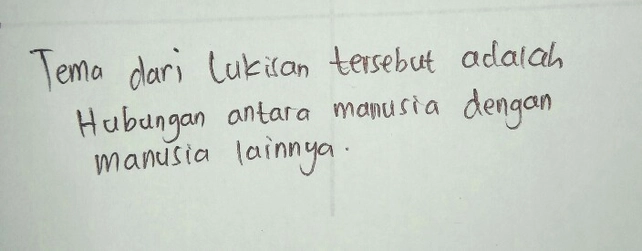 Tema dari lukisan tersebut adalah
Hubungan antara manusia dengan
manusia lainnya.